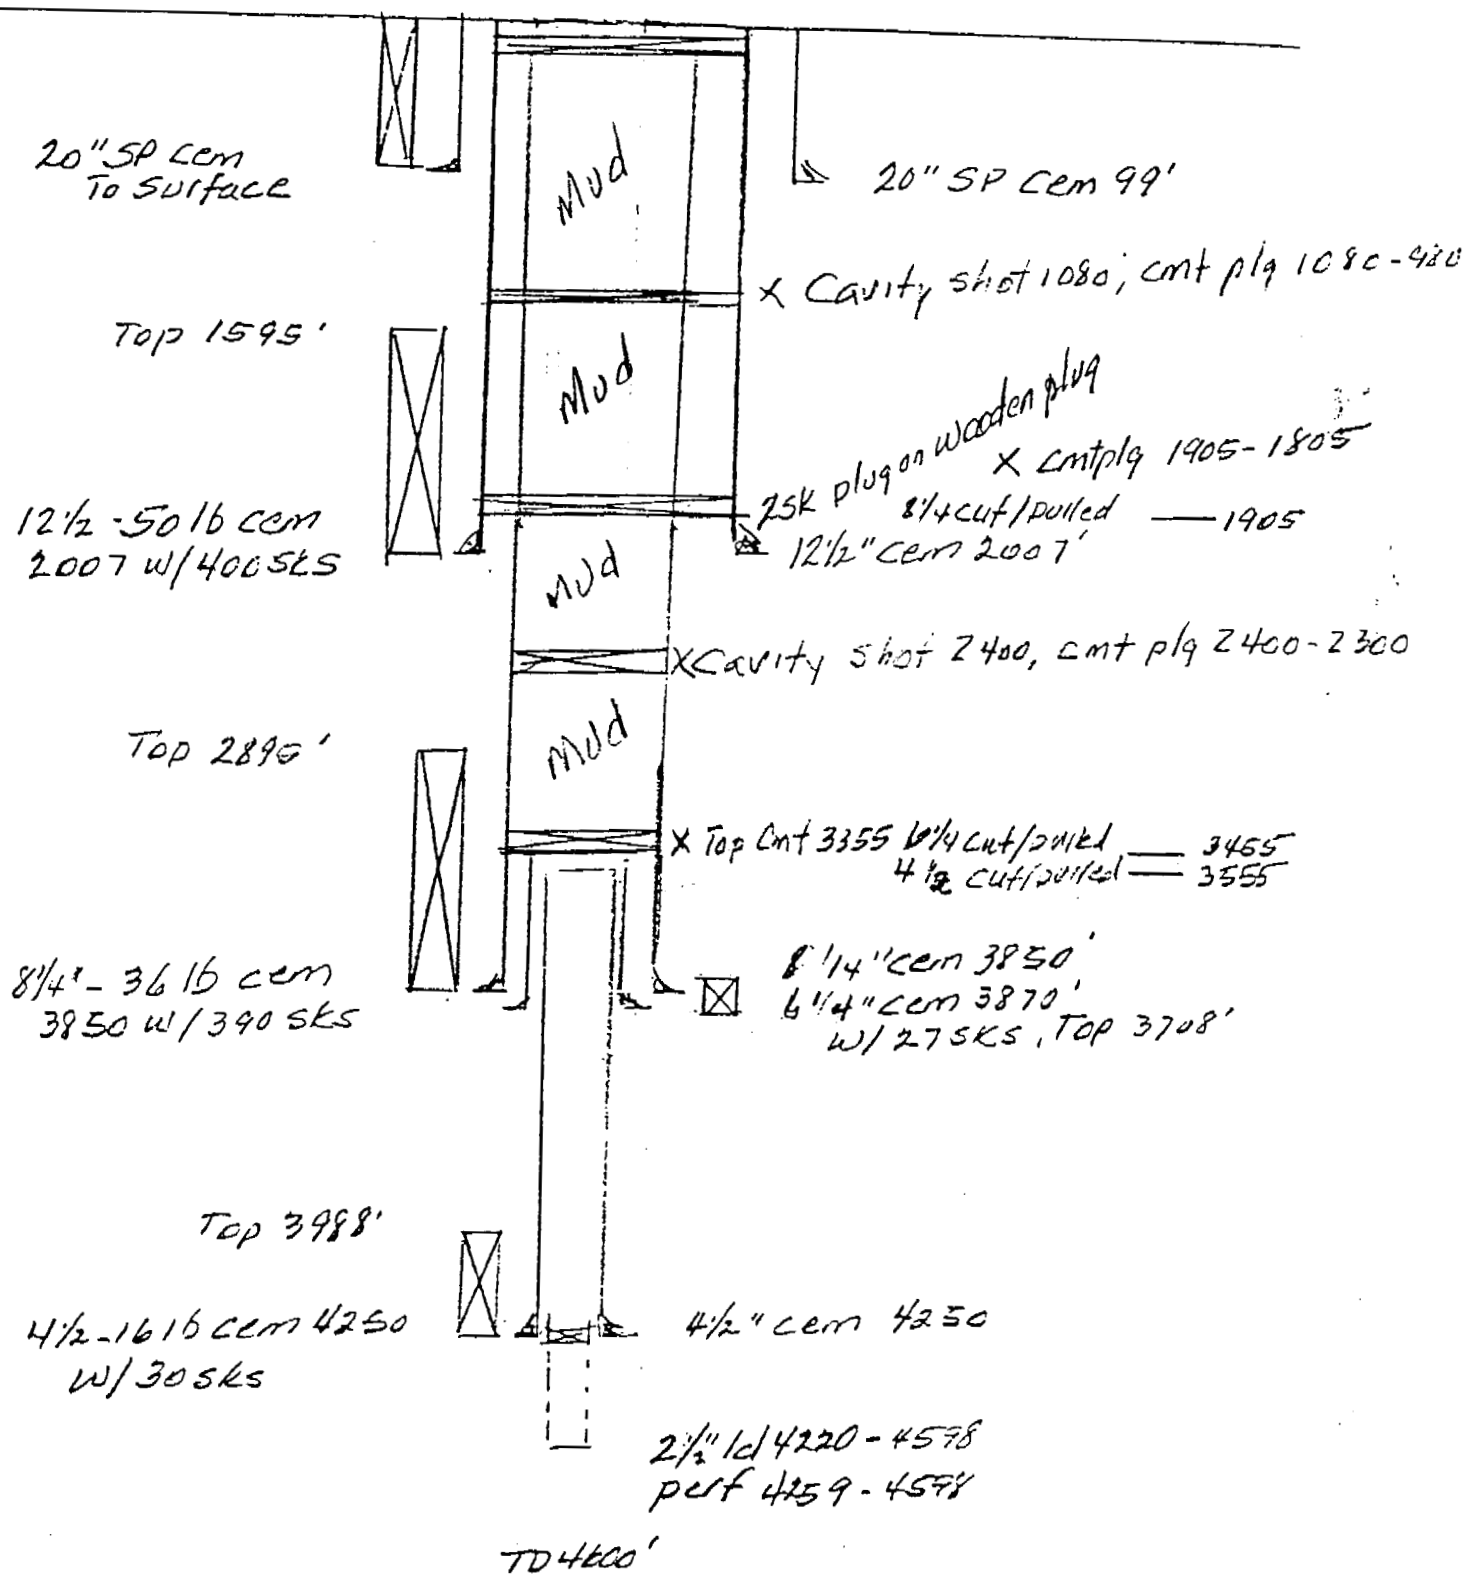 20" SP cem
To Surface
20" SP cem 99'
Mud
X Cavity shot 1080, cmt plg 1080-980
Top 1595'
Mud
25K plug on wooden plug
X cmt plg 1905-1805
8 1/4 cut/pulled — 1905
12 1/2 - 50 lb cem
2007 w/400 SKS
12 1/2" cem 2007'
Mud
X Cavity shot 2400, cmt plg 2400-2300
Mud
Top 2895'
X Top Cmt 3355 6 1/4 cut/pulled — 3455
4 1/2 cut/pulled — 3555
8 1/4" - 36 lb cem
3850 w/390 SKS
8 1/4" cem 3850'
6 1/4" cem 3870'
w/ 27 SKS, Top 3708'
Top 3988'
4 1/2 - 16 lb cem 4250
w/ 30 sks
4 1/2" cem 4250
2 1/2" ld 4220-4598
perf 4259-4598
TD 4600'